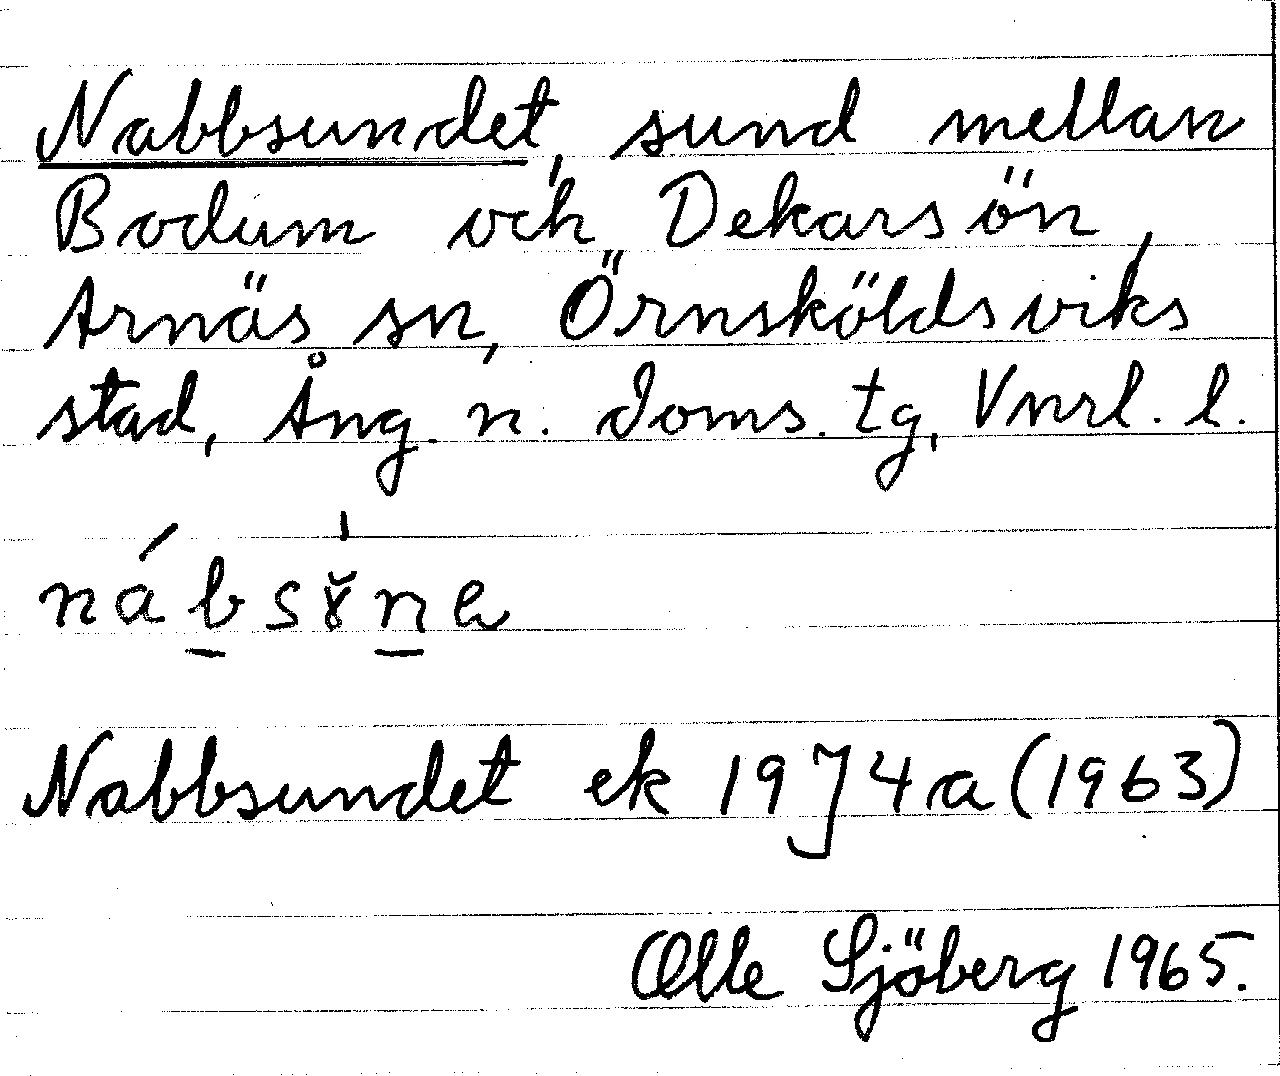 Nabbsundet, sund mellan
Bodum och Dekarsön,
Arnäs sn, Örnsköldsviks
stad, Ång. n. Joms. tg, Vnrl. l.
nábsɤ̆na
Nabbsundet ek 19J4a (1963)
Olle Sjöberg 1965.